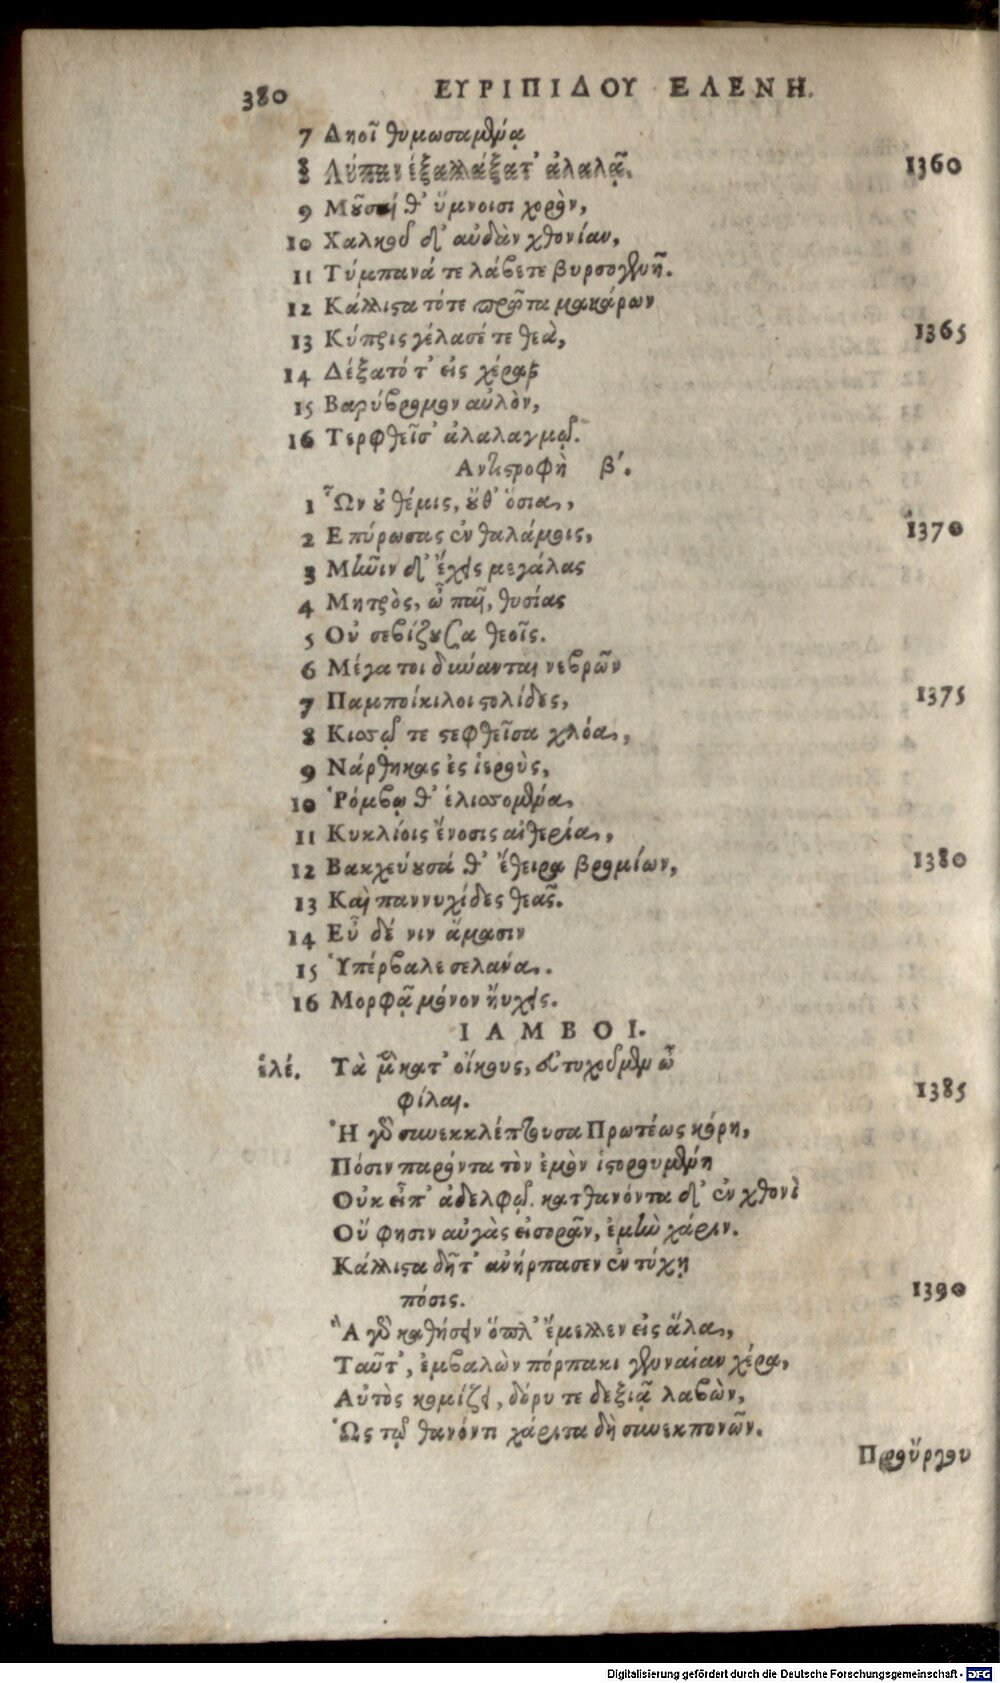 380 ΕΥΡΙΠΙΔΟΥ ΕΛΕΝΗ.
7 Δηοῖ θυμωσαμένᾳ
8 Λύπαν ἐξαλλάξατ' ἀλαλᾷ. 1360
9 Μοῦσαί θ' ὕμνοισι χορὸν,
10 Χαλκοῦ δ' αὐδὰν χθονίαν,
11 Τύμπανά τε λάβετε βυρσογενῆ.
12 Κάλλιστα τότε πρῶτα μακάρων
13 Κύπρις γέλασέ τε θεὰ, 1365
14 Δέξατό τ' εἰς χέρας
15 Βαρύβρομον αὐλὸν,
16 Τερφθεῖσ' ἀλαλαγμῷ.
Αντιστροφὴ β΄.
1 Ὧν οὐ θέμις, οὔθ' ὅσια,
2 Επύρωσας ἐν θαλάμοις, 1370
3 Μῆνιν δ' ἔχεις μεγάλας
4 Μητρὸς, ὦ παῖ, θυσίας
5 Οὐ σεβίζουσα θεοῖς.
6 Μέγα τοι δύνανται νεβρῶν
7 Παμποίκιλοι στολίδες, 1375
8 Κισσῷ τε στεφθεῖσα χλόα,
9 Νάρθηκας ἐς ἱεροὺς,
10 Ῥόμβῳ θ' ἑλισσομένα
11 Κυκλίοις ἔνοσις αἰθερία,
12 Βακχεύουσά θ' ἔθειρα βρομίων, 1380
13 Καὶ παννυχίδες θεᾶς.
14 Εὖ δέ νιν ἄμασιν
15 Ὑπέρβαλε σελάνα.
16 Μορφᾷ μόνον ηὔχεις.
ΙΑΜΒΟΙ.
ἑλέ. Τὰ μὲν κατ' οἴκους, εὐτυχοῦμεν ὦ
φίλαι. 1385
Ἡ γὰρ συνεκκλέπτουσα Πρωτέως κόρη,
Πόσιν παρόντα τὸν ἐμὸν ἱστορουμένη
Οὐκ εἶπ' ἀδελφῷ. κατθανόντα δ' ἐν χθονὶ
Οὔ φησιν αὐγὰς εἰσορᾶν, ἐμὴν χάριν.
Κάλλιστα δῆτ' ἀνήρπασεν ἐν τύχῃ
πόσις. 1390
Ἃ γὰρ καθήσειν ὅπλ' ἔμελλεν εἰς ἅλα,
Ταῦτ', ἐμβαλὼν πόρπακι γενναίαν χέρα,
Αὐτὸς κομίζει, δόρυ τε δεξιᾷ λαβὼν,
Ὡς τῷ θανόντι χάριτα δὴ συνεκπονῶν.
Προὔργου
Digitalisierung gefördert durch die Deutsche Forschungsgemeinschaft - DFG